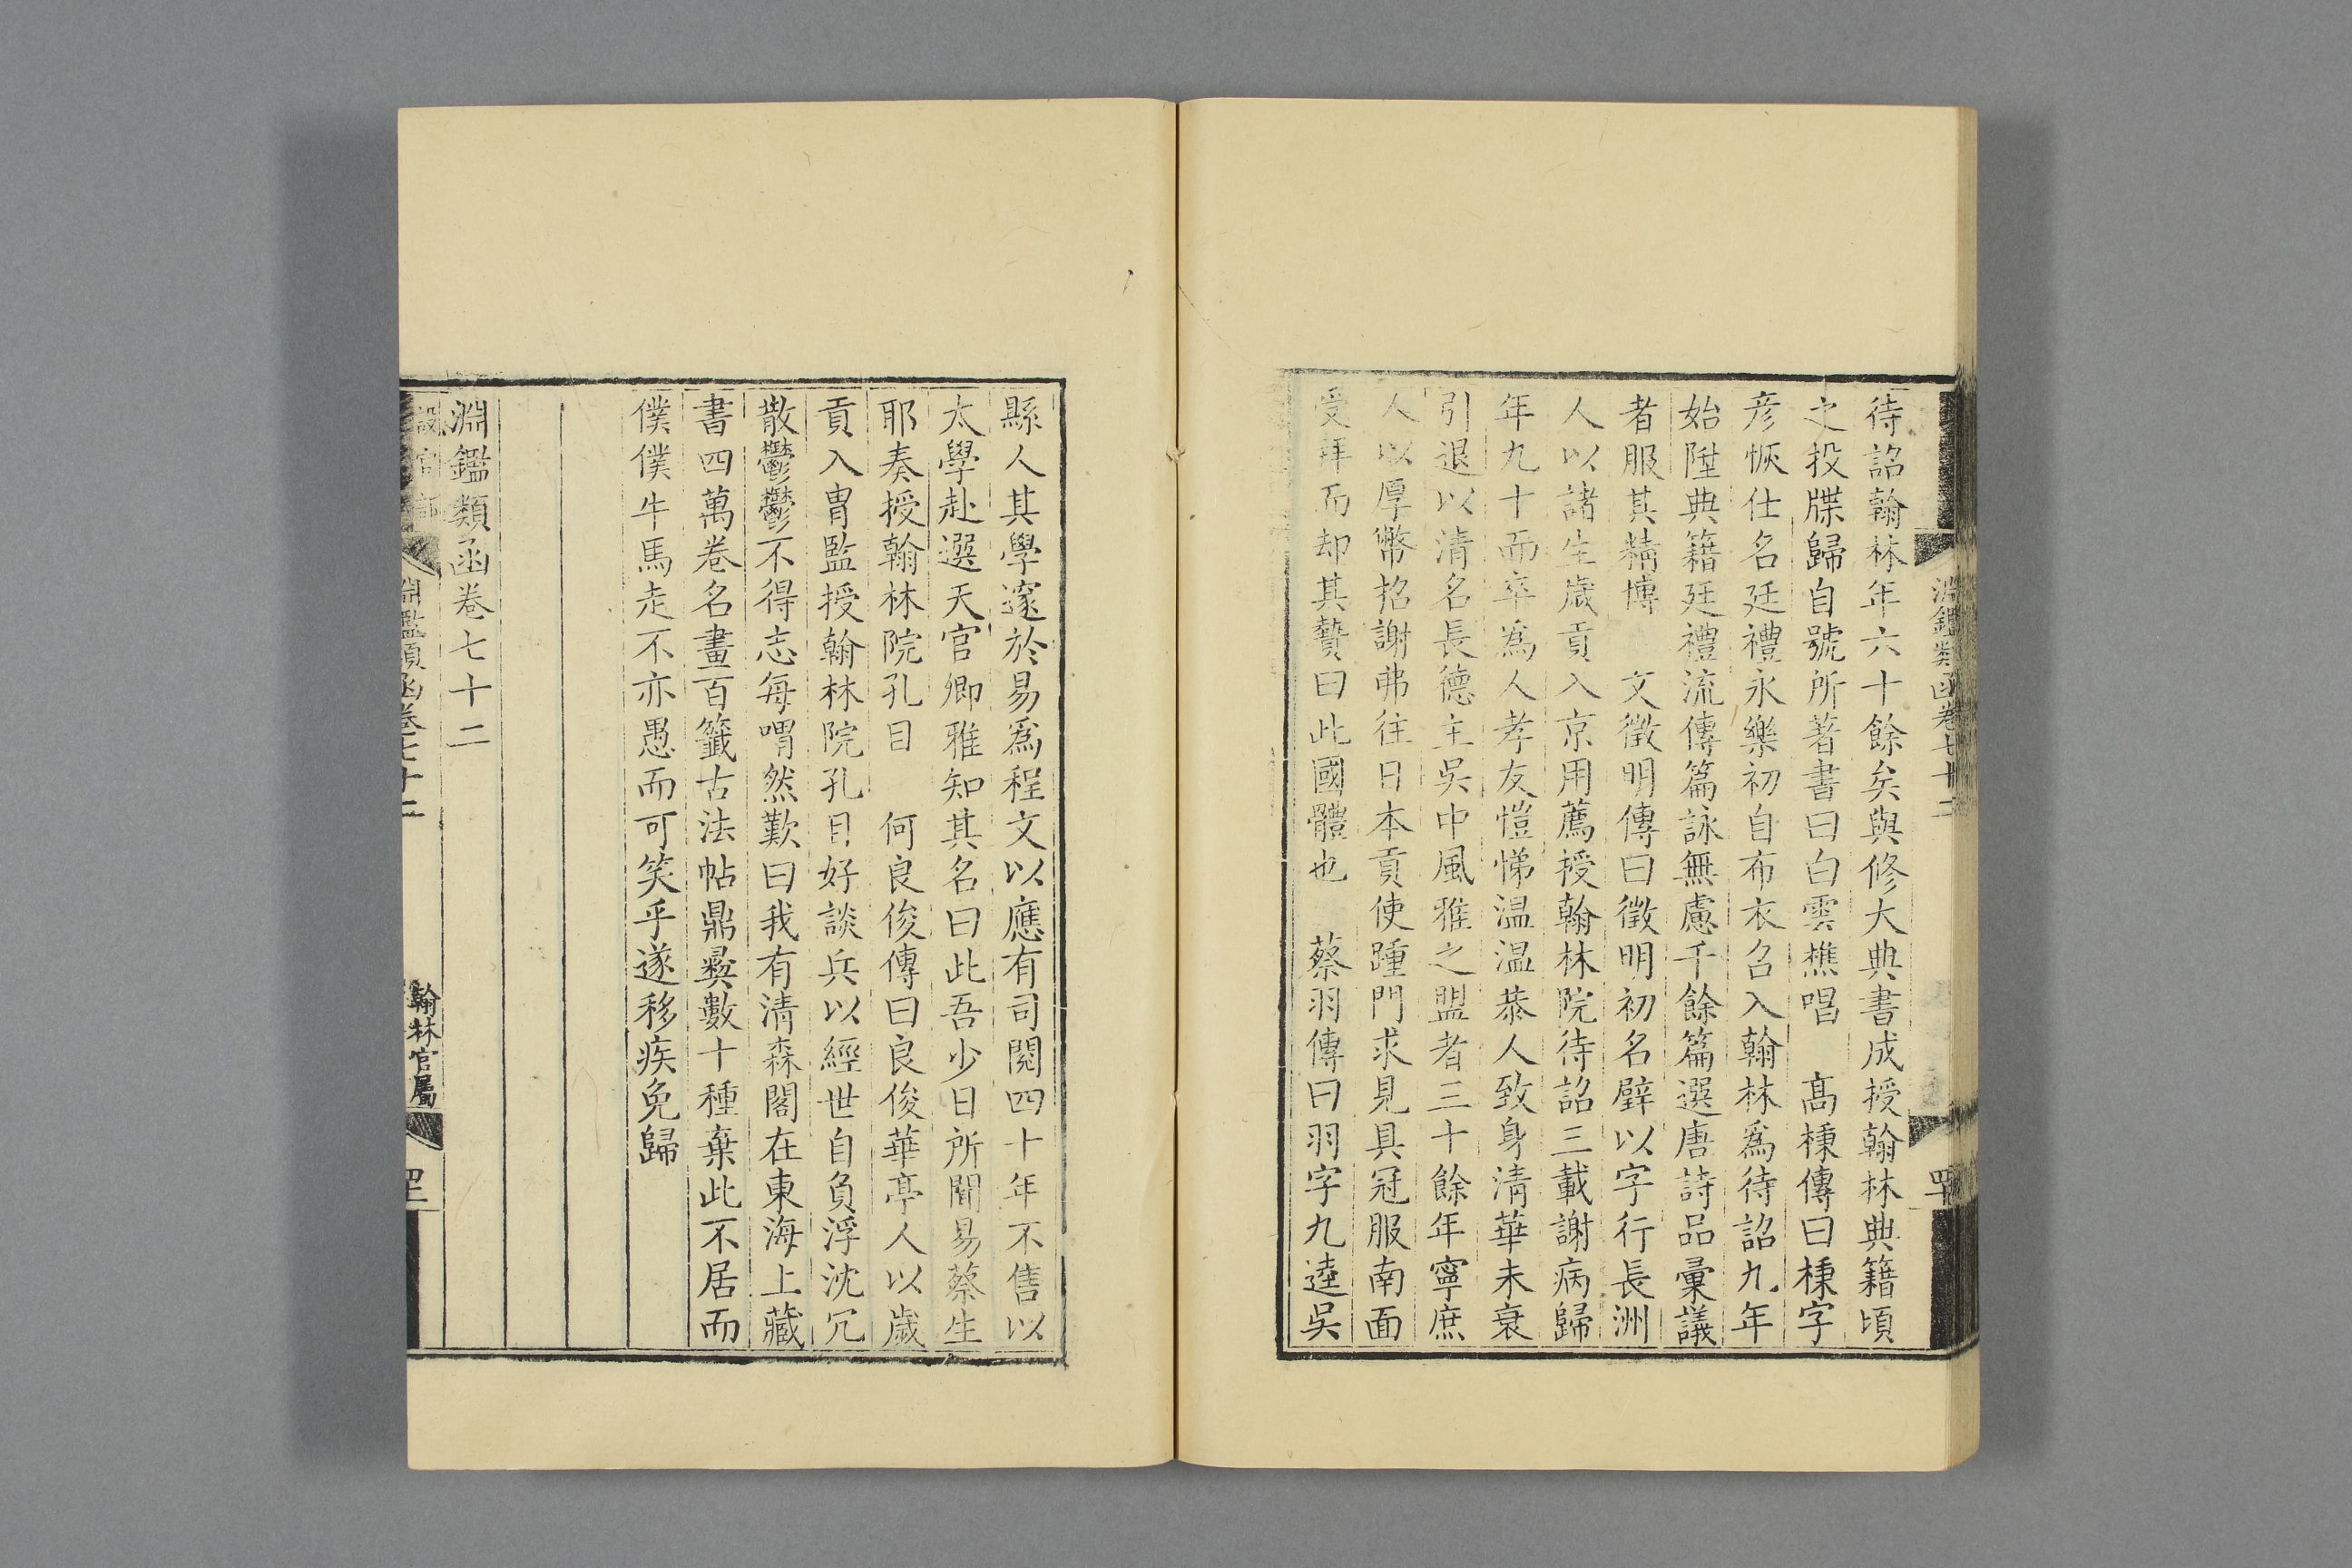 待詔翰林年六十餘矣與修大典書成授翰林典籍頃
之投牒歸自號所著書曰白雲樵唱　高棅傳曰棅字
彦恢仕名廷禮永樂初自布衣召入翰林爲待詔九年
始陞典籍廷禮流傳篇詠無慮千餘篇選唐詩品彚議
者服其精博　文徵明傳曰徵明初名璧以字行長洲
人以諸生歲貢入京用薦授翰林院待詔三載謝病歸
年九十而卒爲人孝友愷悌温温恭人致身清華未衰
引退以清名長德主吳中風雅之盟者三十餘年寧庶
人以厚幣招謝弗往日本貢使踵門求見具冠服南面
受拜而却其贄曰此國體也　蔡羽傳曰羽字九逵吳
淵鑑類函卷七十二
縣人其學邃於易爲程文以應有司閱四十年不售以
太學赴選天官卿雅知其名曰此吾少日所聞易蔡生
耶奏授翰林院孔目　何良俊傳曰良俊華亭人以歲
貢入胄監授翰林院孔目好談兵以經世自負浮沈冗
散鬱鬱不得志每喟然歎曰我有清森閣在東海上藏
書四萬卷名畫百籤古法帖鼎彛數十種棄此不居而
僕僕牛馬走不亦愚而可笑乎遂移疾免歸
淵鑑類函卷七十二
設官部
淵鑑類函卷七十二
翰林官屬